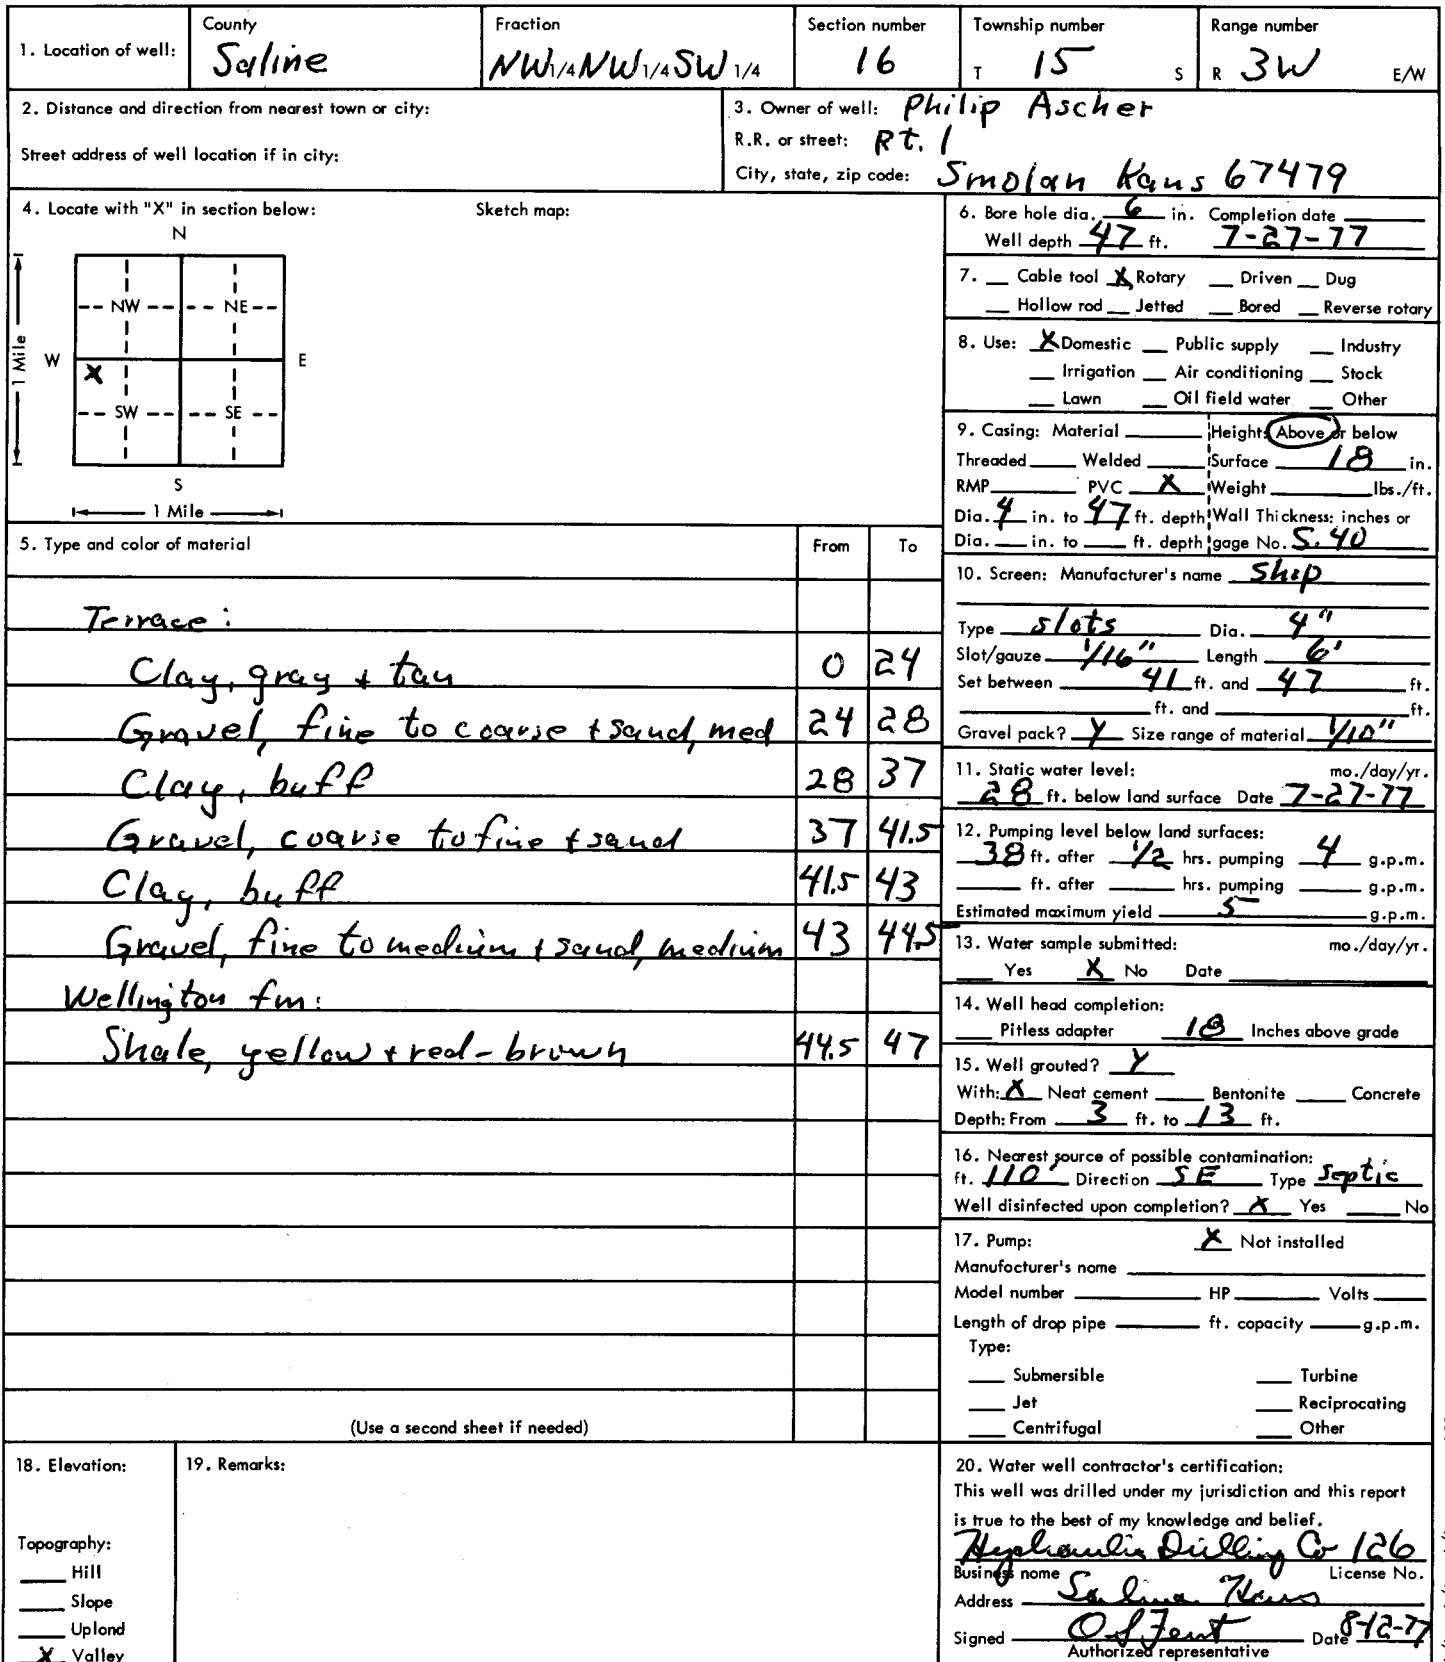 1. Location of well: County Saline Fraction NW 1/4 NW 1/4 SW 1/4 Section number 16 Township number T 15 S Range number R 3W E/W
2. Distance and direction from nearest town or city:
Street address of well location if in city:
3. Owner of well: Philip Ascher
R.R. or street: Rt. 1
City, state, zip code: Smolan Kans 67479
4. Locate with "X" in section below: Sketch map:
N
NW NE
W E
X
SW SE
S
1 Mile
1 Mile
5. Type and color of material From To
Terrace:
Clay, gray + tan 0 24
Gravel, fine to coarse + sand, med 24 28
Clay, buff 28 37
Gravel, coarse to fine + sand 37 41.5
Clay, buff 41.5 43
Gravel, fine to medium + sand, medium 43 44.5
Wellington fm:
Shale, yellow + red-brown 44.5 47
(Use a second sheet if needed)
6. Bore hole dia. 6 in. Completion date
Well depth 47 ft. 7-27-77
7. Cable tool X Rotary Driven Dug
Hollow rod Jetted Bored Reverse rotary
8. Use: X Domestic Public supply Industry
Irrigation Air conditioning Stock
Lawn Oil field water Other
9. Casing: Material Height: Above or below
Threaded Welded Surface 18 in.
RMP PVC X Weight lbs./ft.
Dia. 4 in. to 47 ft. depth Wall Thickness: inches or
Dia. in. to ft. depth gage No. S. 40
10. Screen: Manufacturer's name Shop
Type slots Dia. 4"
Slot/gauze 1/16" Length 6'
Set between 41 ft. and 47 ft.
ft. and ft.
Gravel pack? Y Size range of material 1/10"
11. Static water level: mo./day/yr.
28 ft. below land surface Date 7-27-77
12. Pumping level below land surfaces:
38 ft. after 1/2 hrs. pumping 4 g.p.m.
ft. after hrs. pumping g.p.m.
Estimated maximum yield 5 g.p.m.
13. Water sample submitted: mo./day/yr.
Yes X No Date
14. Well head completion:
Pitless adapter 18 Inches above grade
15. Well grouted? Y
With: X Neat cement Bentonite Concrete
Depth: From 3 ft. to 13 ft.
16. Nearest source of possible contamination:
ft. 110' Direction SE Type Septic
Well disinfected upon completion? X Yes No
17. Pump: X Not installed
Manufacturer's name
Model number HP Volts
Length of drop pipe ft. capacity g.p.m.
Type:
Submersible Turbine
Jet Reciprocating
Centrifugal Other
18. Elevation:
Topography:
Hill
Slope
Upland
X Valley
19. Remarks:
20. Water well contractor's certification:
This well was drilled under my jurisdiction and this report
is true to the best of my knowledge and belief.
Hydraulic Drilling Co 126
Business name License No.
Address Salina Kans
Signed O S Fent Date 8-12-77
Authorized representative